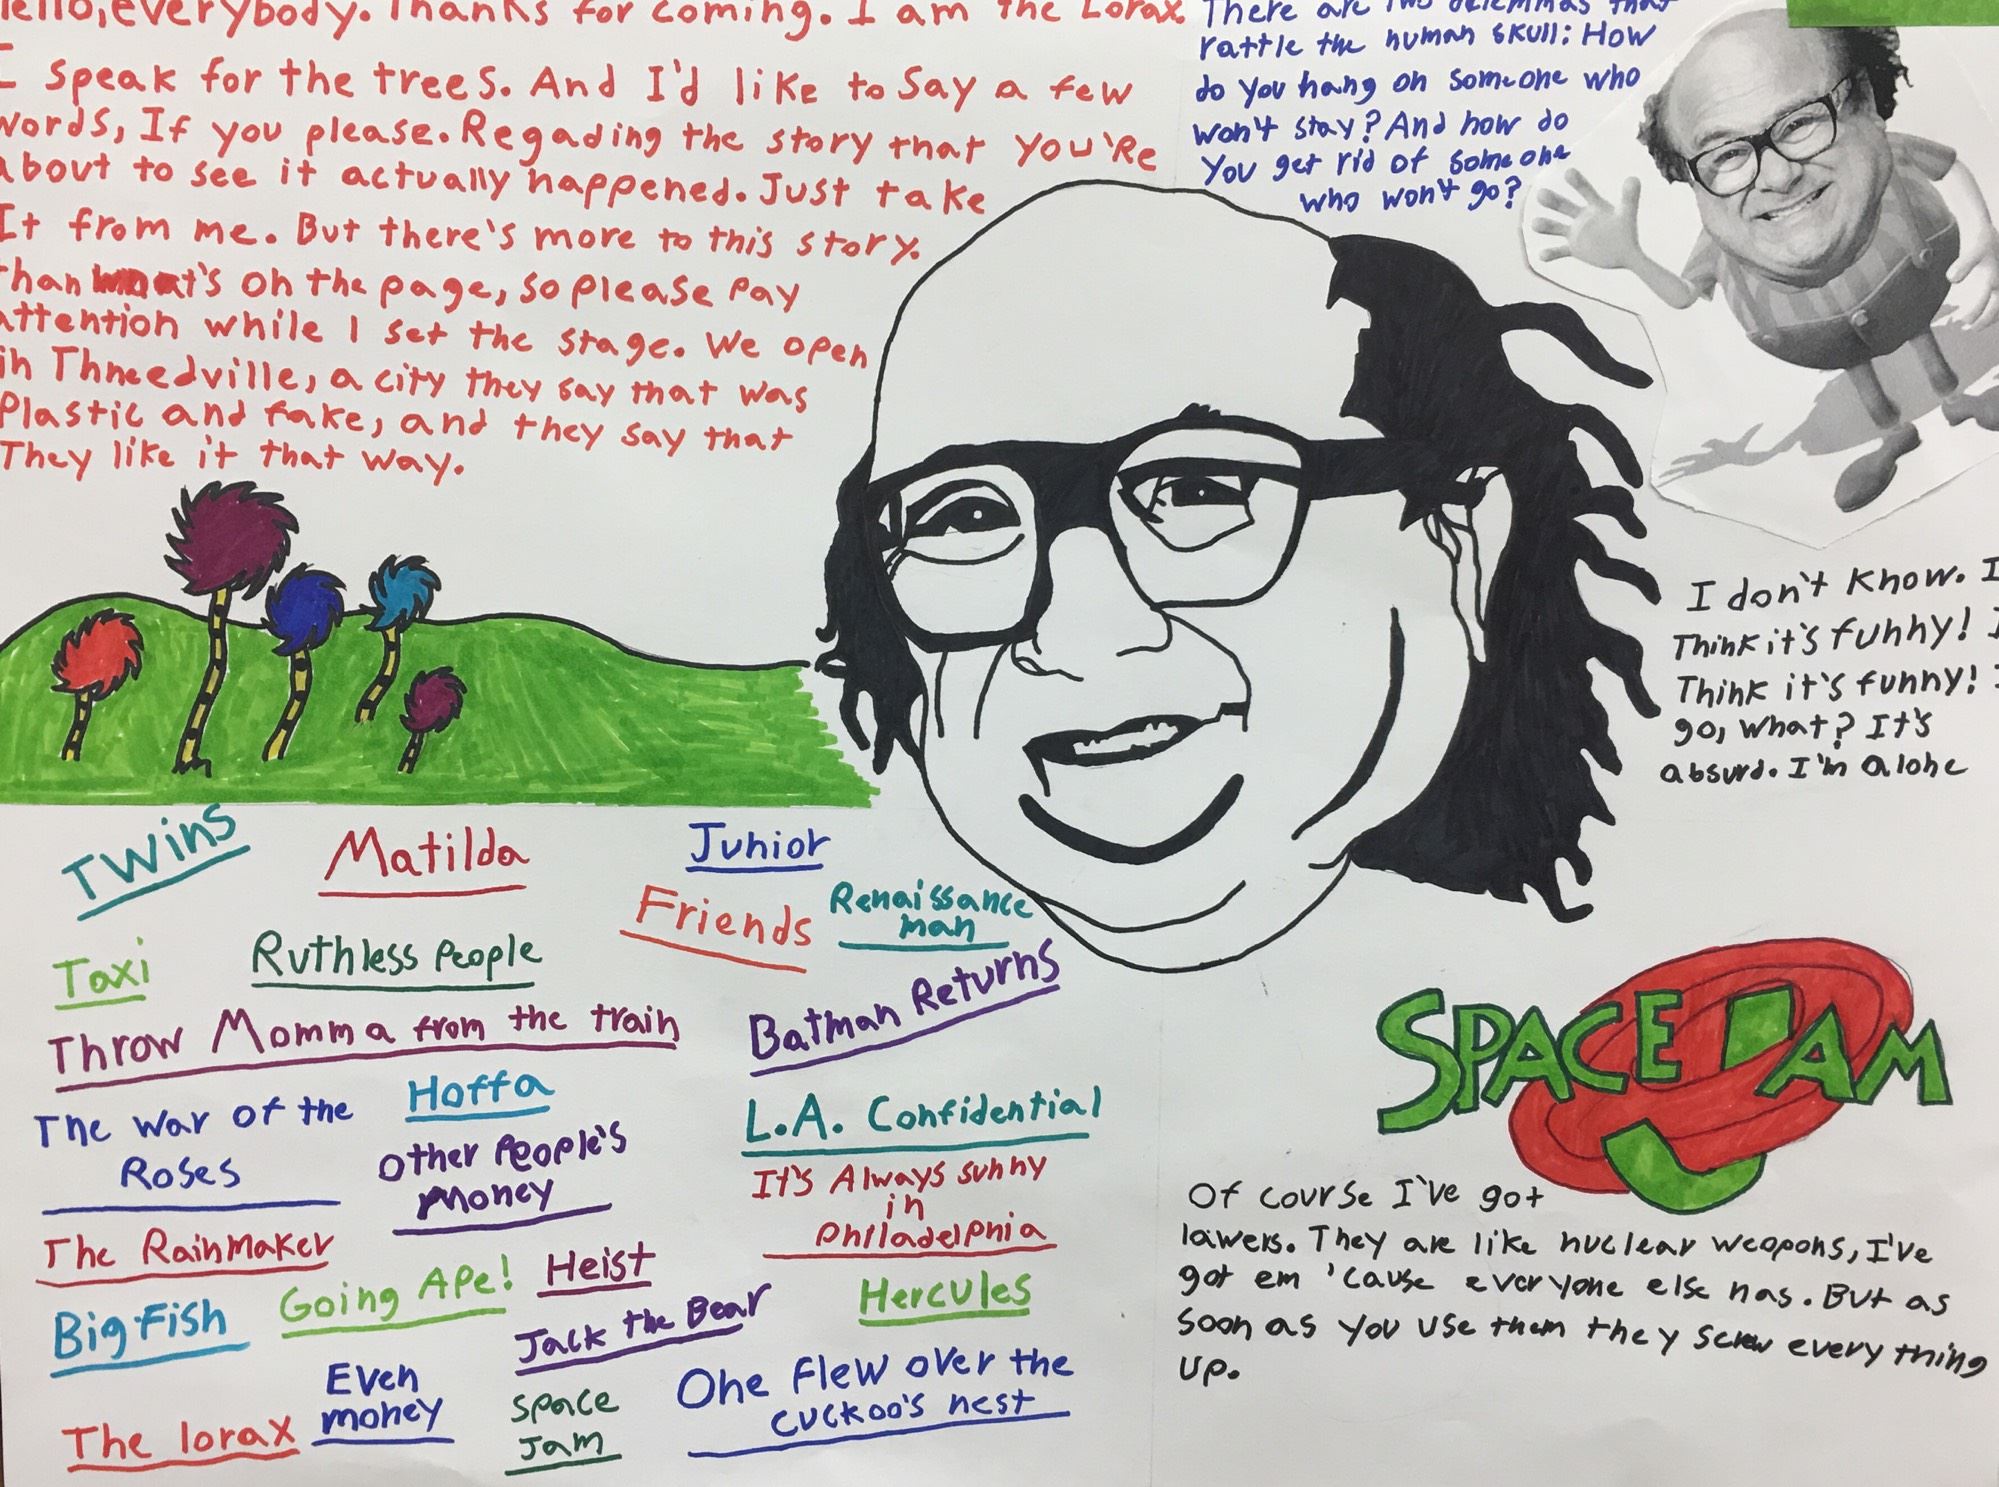 Hello, everybody. Thanks for coming. I am the Lorax.
I speak for the trees. And I'd like to say a few
words, If you please. Regading the story that you're
about to see it actually happened. Just take
It from me. But there's more to this story.
than what's on the page, so please pay
attention while I set the stage. We open
in Thneedville, a city they say that was
Plastic and fake, and they say that
They like it that way.
There are two dilemmas that
rattle the human skull: How
do you hang on someone who
won't stay? And how do
You get rid of someone
who won't go?
I don't know. I
Think it's funny! I
Think it's funny! I
go, what? It's
absurd. I'm alone
Twins
Matilda
Junior
Friends
Renaissance
man
Taxi
Ruthless People
Throw Momma from the train
Batman Returns
The War of the
Roses
Hoffa
Other People's
Money
L.A. Confidential
It's Always sunny
in
Philadelphia
The Rainmaker
Going Ape!
Heist
Hercules
Big Fish
Jack the Bear
Even
money
The lorax
Space
Jam
One flew over the
cuckoo's nest
SPACE JAM
Of course I've got
lawers. They are like nuclear weopons, I've
got em 'cause everyone else has. But as
soon as you use them they screw everything
up.